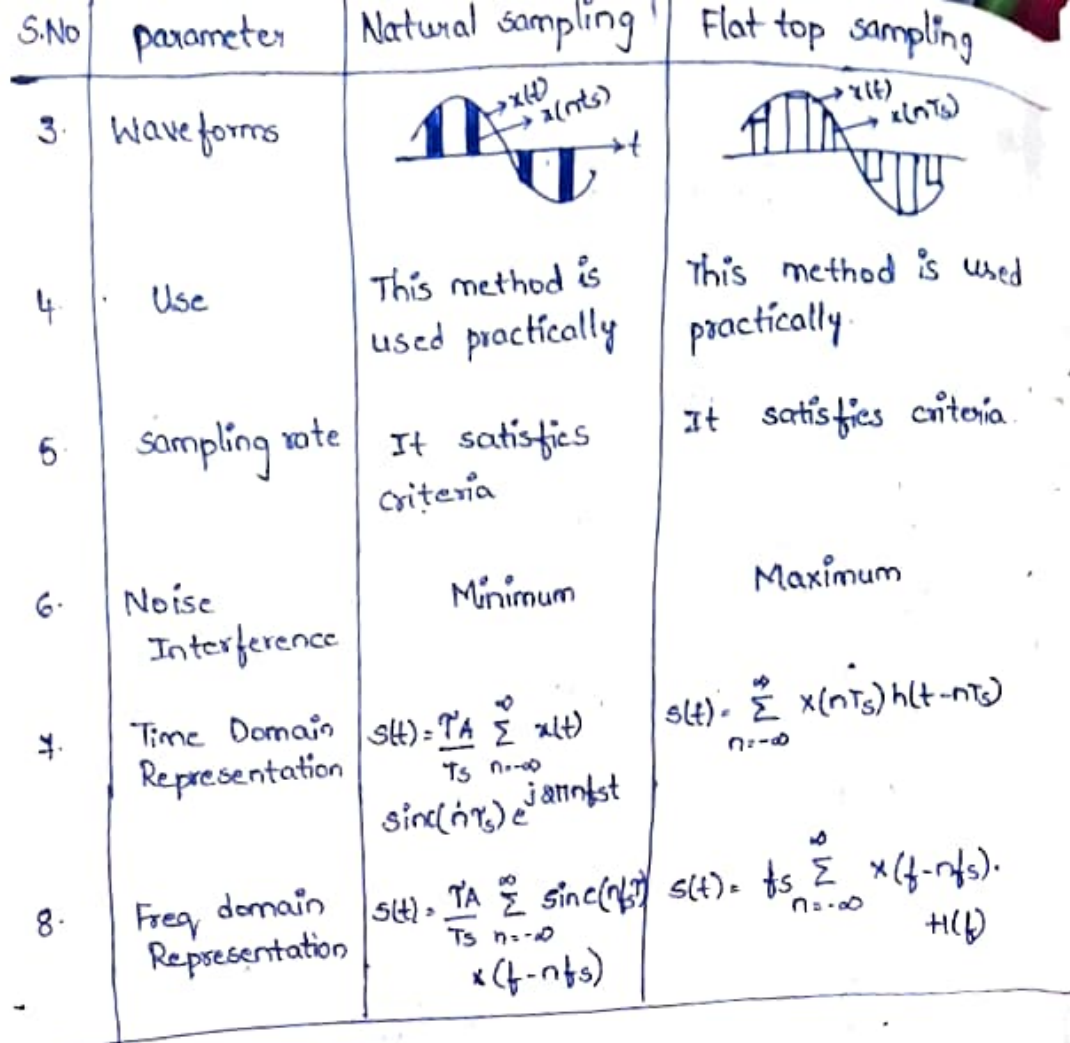 S.No parameter Natural sampling Flat top sampling
3. Waveforms
x(t)
x(nts)
t
x(t)
x(nTs)
4. Use
This method is
used practically
This method is used
practically.
5. Sampling rate
It satisfies
criteria
It satisfies criteria.
6. Noise
Interference
Minimum
Maximum
7. Time Domain
Representation
s(t) = τA/Ts ∑ n=-∞ ∞ x(t)
sinc(nτs) e^j2πnfst
s(t) = ∑ n=-∞ ∞ x(nTs) h(t-nTs)
8. Freq domain
Representation
s(t) = τA/Ts ∑ n=-∞ ∞ sinc(nfsτ)
x(f-nfs)
s(t) = fs ∑ n=-∞ ∞ x(f-nfs).
H(f)